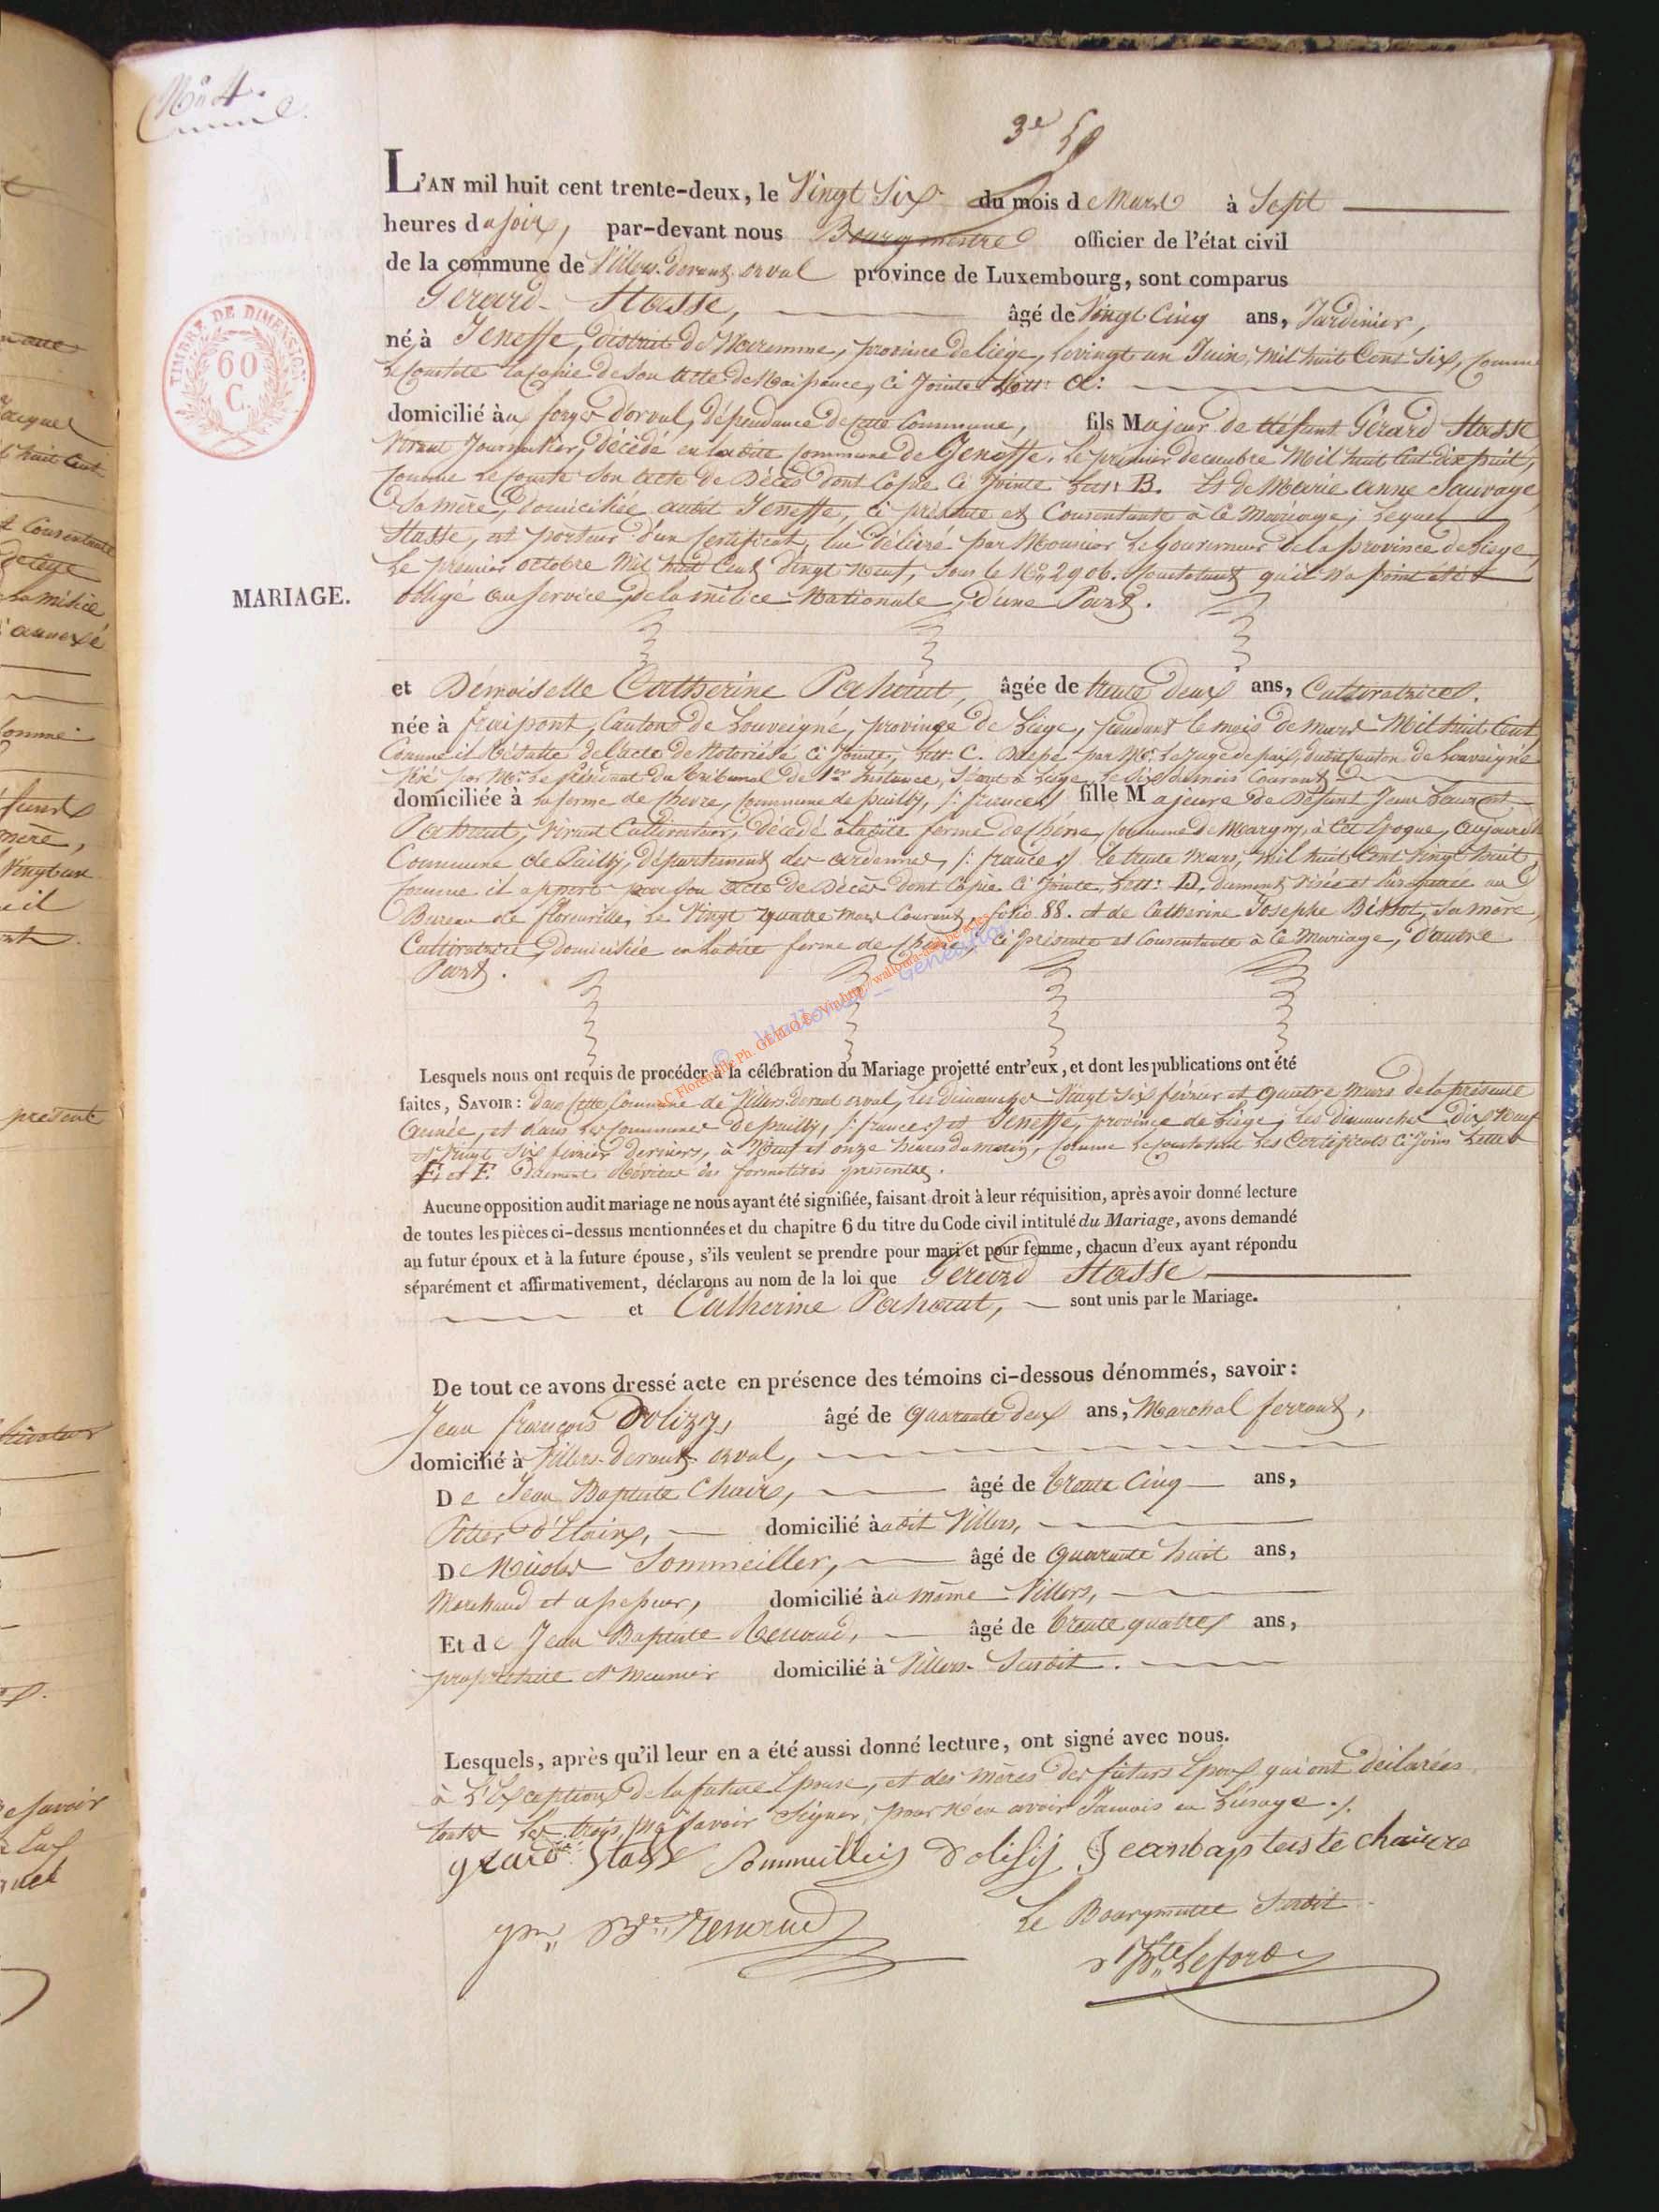 N° 4.
3e
L'AN mil huit cent trente-deux, le Vingt Six du mois de Mars à Sept
heures du soir, par-devant nous Bourgmestre officier de l'état civil
de la commune de Villers-devant-orval province de Luxembourg, sont comparus
Gerard Stasse, âgé de Vingt Cinq ans, Jardinier,
né à Jeneffe, district de Waremme, province de Liége, le vingt un Juin, mil huit Cent Six, Comme
le constate la Copie de son Acte de Naissance, Ci Jointe Lett: A:
domicilié aux forges d'orval, dépendance de cette Commune, fils Majeur de défunt Gérard Stasse
Vivant Journalier, décédé en ladite Commune de Jeneffe, le premier decembre Mil huit Cent dix huit,
Comme le Conste son Acte de Décès dont Copie Ci Jointe Lett: B. Et de Marie anne Sauvage,
Sa mère, domiciliée audit Jeneffe, ci présente et Consentante à Ce Mariage; lequel
Stasse, est porteur d'un Certificat, lui délivré par Monsieur le Gouverneur de la province de Liége
le premier octobre Mil huit Cent Vingt Neuf, sous le No 2906. Constatant qu'il n'a point été
obligé au service de la milice Nationale, d'une Part.
MARIAGE.
TIMBRE DE DIMENSION
60
C.
et Démoiselle Catherine Pahaut, âgée de trente deux ans, Cultivatrice.
née à fraipont, Canton de Louveigné, province de Liége, pendant le mois de mars Mil huit Cent,
Comme il Résulte de l'acte de Notoriété Ci Jointe, Lett. C. par Mr. le Juge de paix dudit Canton de Louveigné
par Mr. le Président du Tribunal de 1er Instance, Séant à Liége, le Six du mois Courant
domiciliée à la ferme de Chevre, Commune de puilly, /: france :/ fille Majeure de Défunt Jean Laurent
Pahaut, Vivant Cultivateur, décédé à ladite ferme de Chévre, Commune de Margny, à Cet Epoque, aujourd'h
Commune de Puilly, département des ardennes, /: france :/ le trente Mars, mil huit Cent Vingt huit,
Comme il appert par son Acte de Décès dont Copie Ci Jointe, Lett: D, dûment Visée et Enregistrée au
Bureau de florenville, le Vingt quatre Mars Courant, folio 88. et de Catherine Josephe Bissot, Sa mère,
Cultivatrice, domiciliée en ladite ferme de Chevre, Ci présente et Consentante à Ce Mariage, d'autre
Part.
Lesquels nous ont requis de procéder à la célébration du Mariage projetté entr'eux, et dont les publications ont été
faites, SAVOIR: dans Cette Commune de Villers-devant-orval, les dimanches Vingt Six février et quatre mars de la présente
année, et dans les Communes de puilly, /: france :/ et Jeneffe, province de Liége, les dimanches dix Neuf
et Vingt Six février derniers, à Neuf et onze heures du matin, Comme le Constatent les Certificats Ci Joins Lettes
E. et F. Dument Révétue des formalités présentes.
Aucune opposition audit mariage ne nous ayant été signifiée, faisant droit à leur réquisition, après avoir donné lecture
de toutes les pièces ci-dessus mentionnées et du chapitre 6 du titre du Code civil intitulé du Mariage, avons demandé
au futur époux et à la future épouse, s'ils veulent se prendre pour mari et pour femme, chacun d'eux ayant répondu
séparément et affirmativement, déclarons au nom de la loi que Gerard Stasse
et Catherine Pahaut, sont unis par le Mariage.
De tout ce avons dressé acte en présence des témoins ci-dessous dénommés, savoir:
Jean françois Dolizy, âgé de quarante deux ans, Marchal ferrant,
domicilié à Villers-devant-orval,
De Jean Baptiste Chaire, âgé de trente Cinq ans,
Potier d'Etain, domicilié audit Villers,
De Nicolas Sommeiller, âgé de quarante huit ans,
Marchand et assesseur, domicilié au même Villers,
Et de Jean Baptiste Renaud, âgé de trente quatres ans,
propriétaire et Meunier domicilié à Villers-Susdit.
Lesquels, après qu'il leur en a été aussi donné lecture, ont signé avec nous.
à L'Exception de la future Epouse, et des mères des futurs Epoux qui ont déclarées
toutes les trois, ne savoir Signer, pour n'en avoir Jamais eu L'usage ./.
gerard Stasse Sommeillier Dolisy Jeanbapteiste chairre
Jn Bte Renaud
Le Bourgmestre Susdit
Bte Leford
AC Florenville Ph. GERARD © Via http://wallonia-asbl.be/actes
© Wallonia _ Genealog